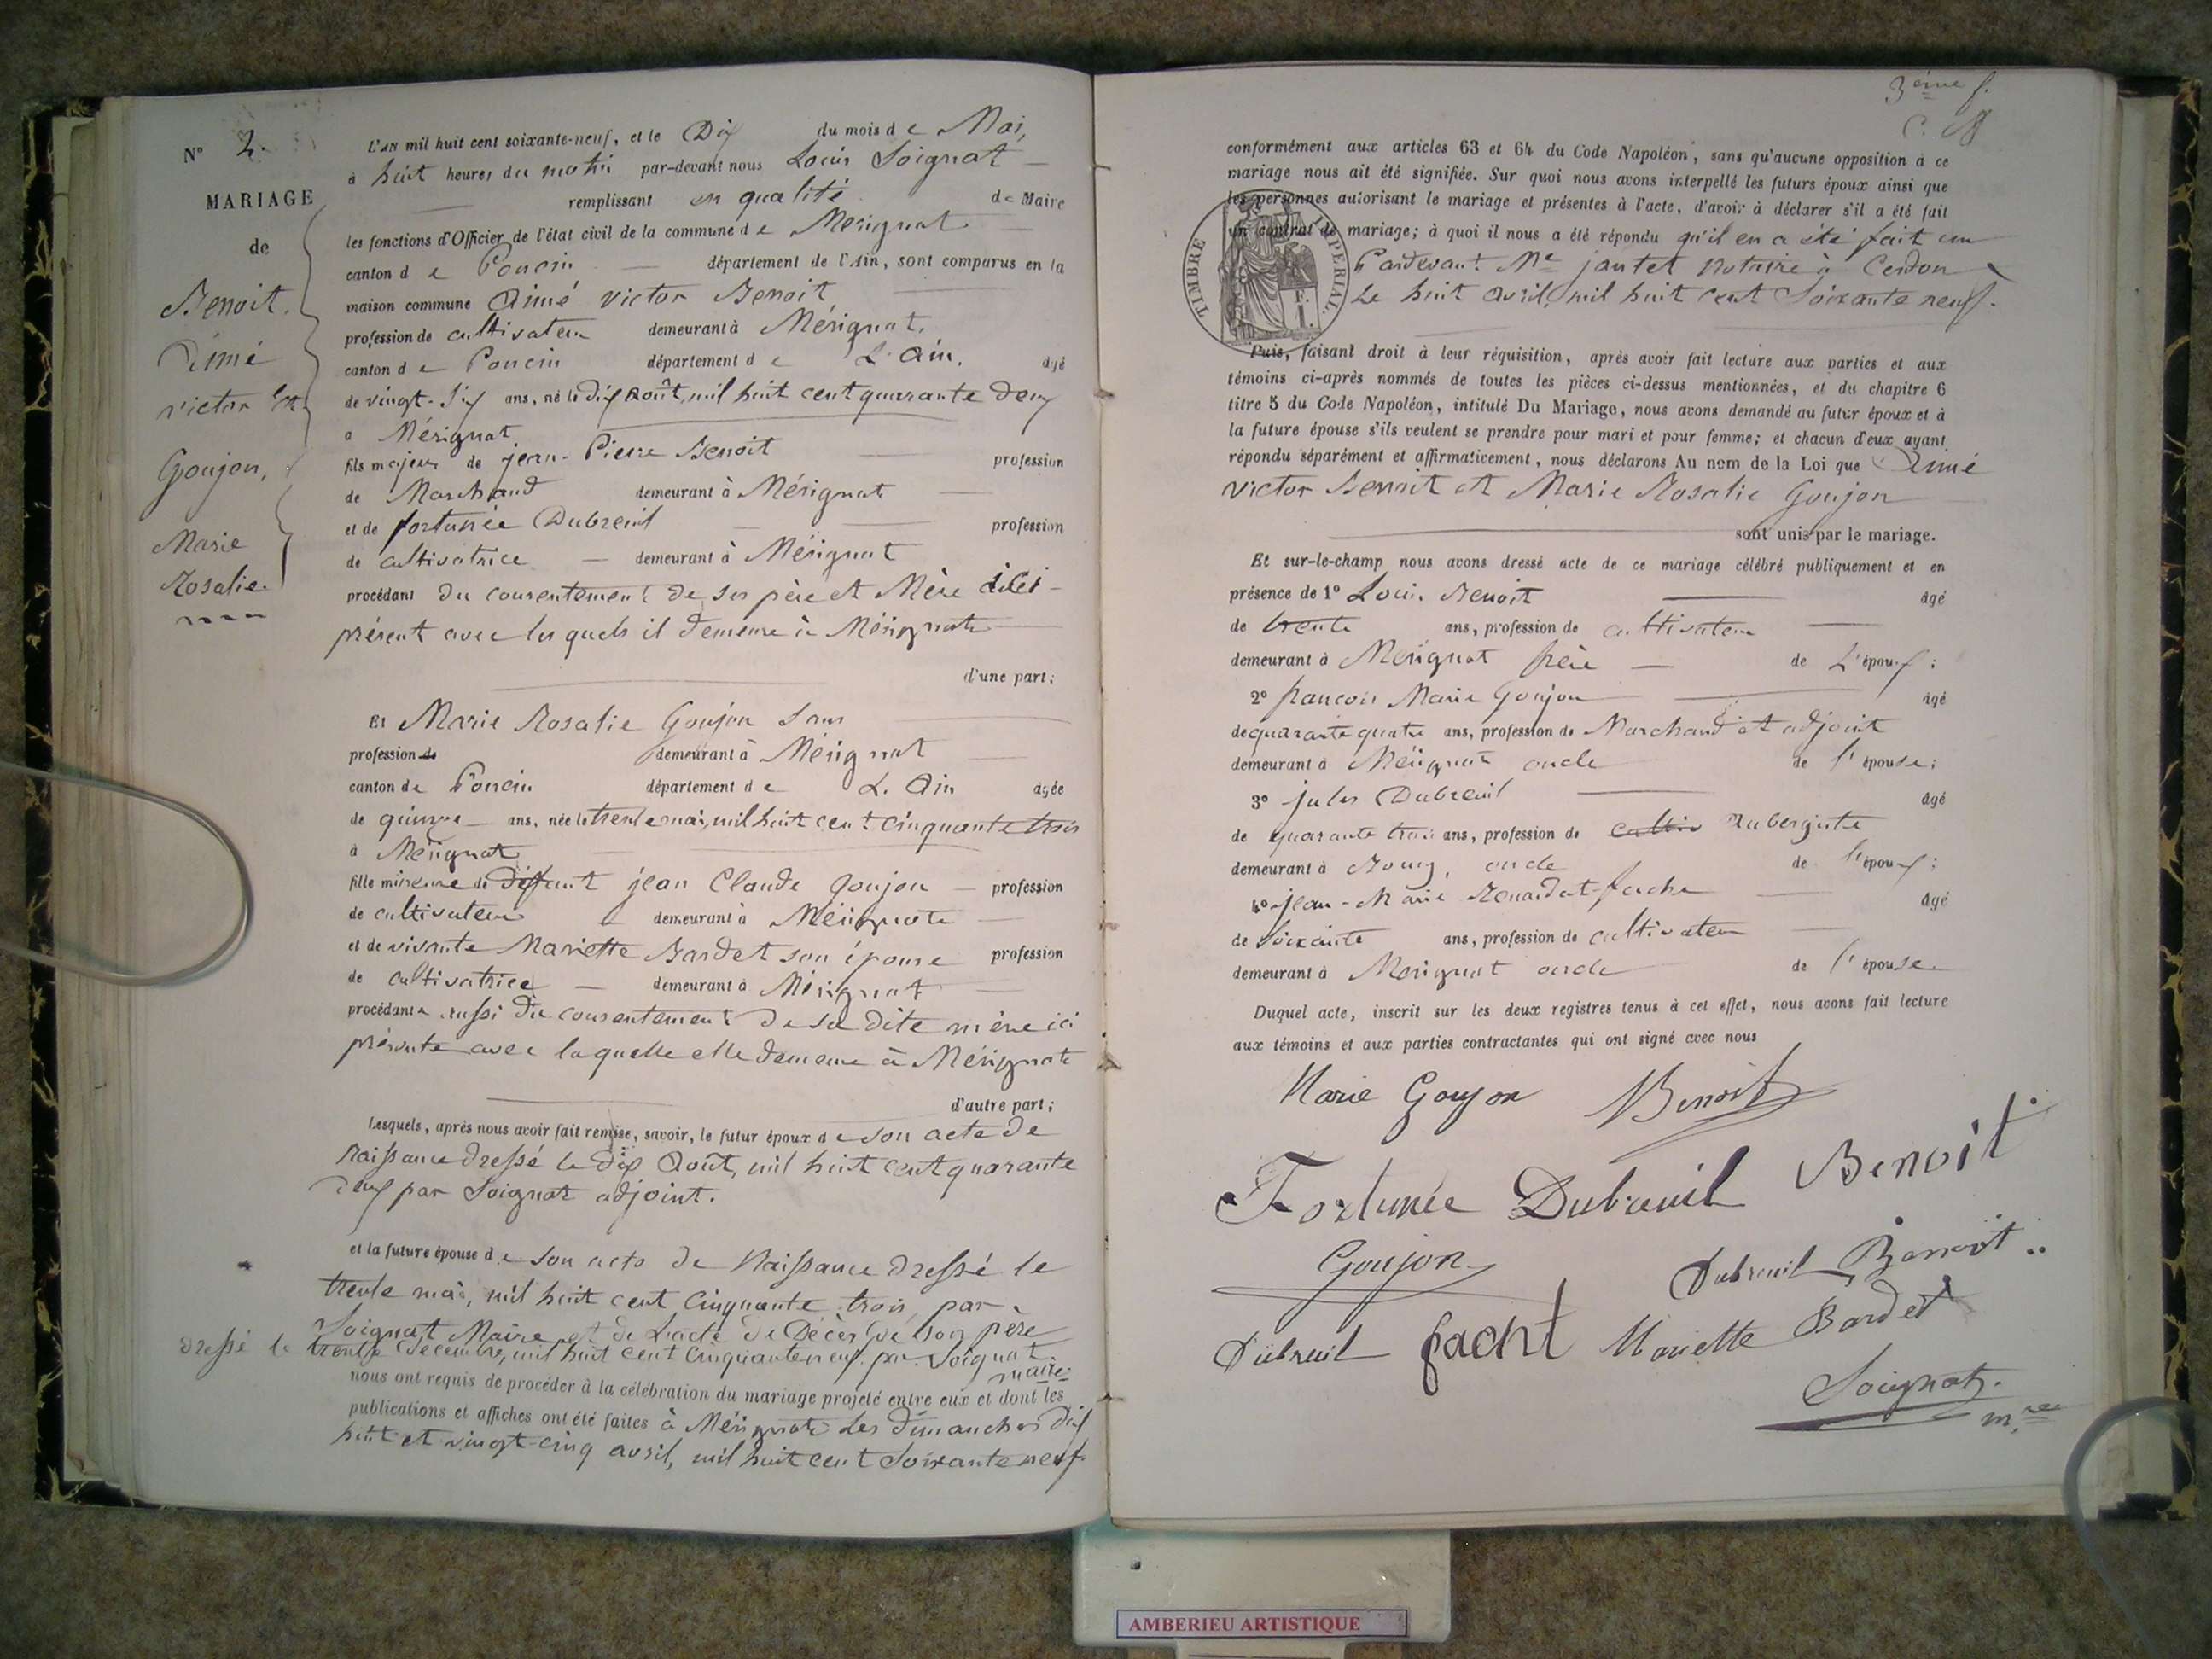 N° 2.
MARIAGE
de
Benoit,
Aimé
victor Et
Goujon,
Marie
Rosalie
L'AN mil huit cent soixante-neuf, et le Dix du mois de Mai,
à huit heures du matin par-devant nous Louis Soignat
remplissant en qualité de Maire
les fonctions d'Officier de l'état civil de la commune de Mérignat
canton de Poncin département de l'Ain, sont comparus en la
maison commune Aimé victor Benoit
profession de cultivateur demeurant à Mérignat,
canton de Poncin département de L'Ain. âgé
de vingt-six ans, né le dix Août, mil huit cent quarante deux
à Mérignat
fils majeur de jean-Pierre Benoit profession
de Marchand demeurant à Mérignat
et de fortunée Dubreuil profession
de cultivatrice demeurant à Mérignat
procédant du consentement de ses père et Mère ici
présent avec lesquels il demeure à Mérignat
d'une part;
Et Marie Rosalie Goujon sans
profession de demeurant à Mérignat
canton de Poncin département de L'Ain âgée
de quinze ans, née le trente mai, mil huit cent cinquante trois
à Mérignat
fille mineure de défunt jean Claude Goujon profession
de cultivateur demeurant à Mérignat
et de vivante Mariette Bardet son épouse profession
de cultivatrice demeurant à Mérignat
procédante aussi du consentement de sa dite mère ici
présente avec laquelle elle demeure à Mérignat
d'autre part;
Lesquels, après nous avoir fait remise, savoir, le futur époux de son acte de
Naissance dressé le dix Août, mil huit cent quarante
deux par Soignat adjoint.
et la future épouse de son acte de Naissance dressé le
trente mai, mil huit cent cinquante trois, par
Soignat Maire et de L'acte de Décès de son père
dressé le trente Décembre, mil huit cent cinquante neuf par Soignat
maire
nous ont requis de procéder à la célébration du mariage projeté entre eux et dont les
publications et affiches ont été faites à Mérignat Les dimanches dix
huit et vingt-cinq avril, mil huit cent soixante neuf
3ème f.
conformément aux articles 63 et 64 du Code Napoléon, sans qu'aucune opposition à ce
mariage nous ait été signifiée. Sur quoi nous avons interpellé les futurs époux ainsi que
les personnes autorisant le mariage et présentes à l'acte, d'avoir à déclarer s'il a été fait
un contrat de mariage; à quoi il nous a été répondu qu'il en a été fait un
Pardevant Me jantet Notaire à Cerdon
Le huit avril, mil huit cent soixante neuf.
TIMBRE IMPERIAL.
Puis, faisant droit à leur réquisition, après avoir fait lecture aux parties et aux
témoins ci-après nommés de toutes les pièces ci-dessus mentionnées, et du chapitre 6
titre 5 du Code Napoléon, intitulé Du Mariage, nous avons demandé au futur époux et à
la future épouse s'ils veulent se prendre pour mari et pour femme; et chacun d'eux ayant
répondu séparément et affirmativement, nous déclarons Au nom de la Loi que Aimé
victor Benoit et Marie Rosalie Goujon
sont unis par le mariage.
Et sur-le-champ nous avons dressé acte de ce mariage célébré publiquement et en
présence de 1° Louis Benoit âgé
de trente ans, profession de cultivateur
demeurant à Mérignat frère de L'époux;
2° francois Marie Goujon âgé
de quarante quatre ans, profession de Marchand et adjoint
demeurant à Mérignat oncle de l'épouse;
3° jules Dubreuil âgé
de quarante trois ans, profession de cultiv Aubergiste
demeurant à Bourg, oncle de l'époux;
4° jean-Marie âgé
de soixante ans, profession de cultivateur
demeurant à Mérignat oncle de l'épouse.
Duquel acte, inscrit sur les deux registres tenus à cet effet, nous avons fait lecture
aux témoins et aux parties contractantes qui ont signé avec nous
Marie Goujon Benoit
Fortunée Dubreuil Benoit
Goujon Dubreuil Benoit
Dubreuil Mariette Bardet
Soignat.
mre
AMBERIEU ARTISTIQUE